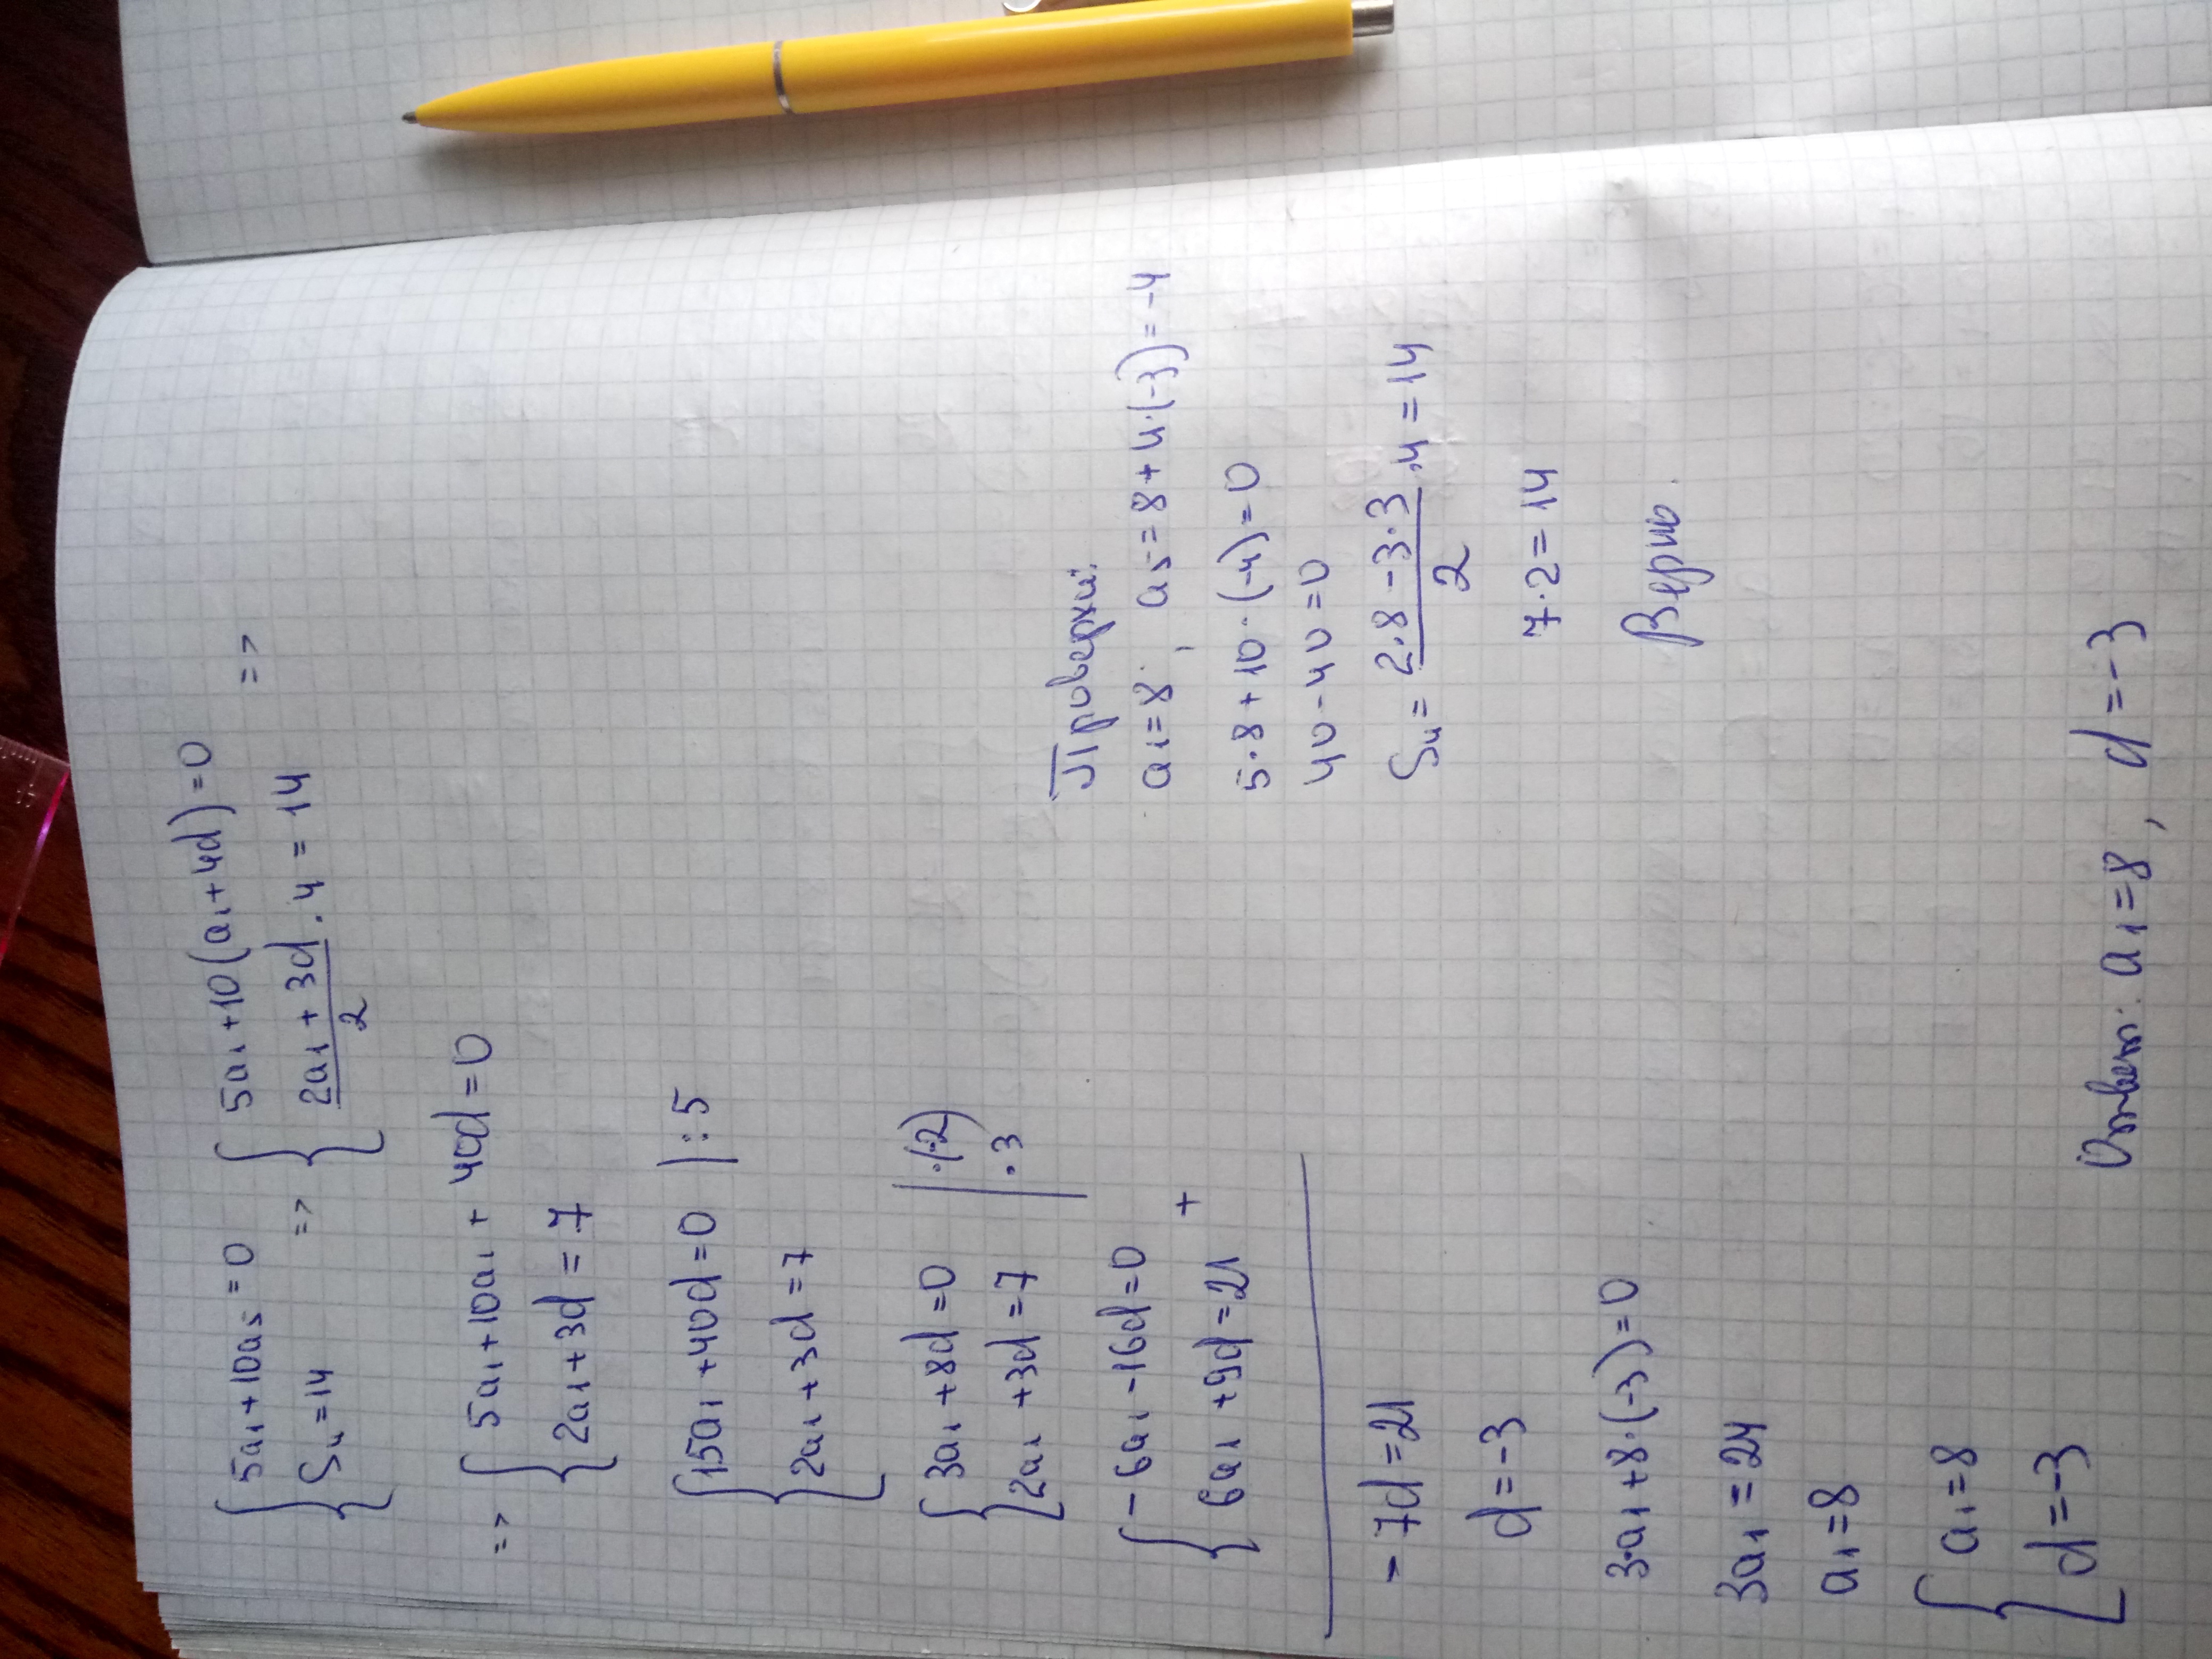 { 5a₁ + 10a₅ = 0 => { 5a₁ + 10(a₁ + 4d) = 0 =>
S₄ = 14 (2a₁ + 3d)/2 · 4 = 14
=> { 5a₁ + 10a₁ + 40d = 0
2a₁ + 3d = 7
{ 15a₁ + 40d = 0 | : 5
2a₁ + 3d = 7
{ 3a₁ + 8d = 0 | · (-2)
2a₁ + 3d = 7 | · 3
{ - 6a₁ - 16d = 0 +
6a₁ + 9d = 21
- 7d = 21
d = -3
3·a₁ + 8·(-3) = 0
3a₁ = 24
a₁ = 8
{ a₁ = 8
d = -3
Проверки:
a₁ = 8, a₅ = 8 + 4·(-3) = -4
5·8 + 10·(-4) = 0
40 - 40 = 0
S₄ = (2·8 - 3·3)/2 · 4 = 14
7·2 = 14
Верно.
Ответ: a₁ = 8, d = -3